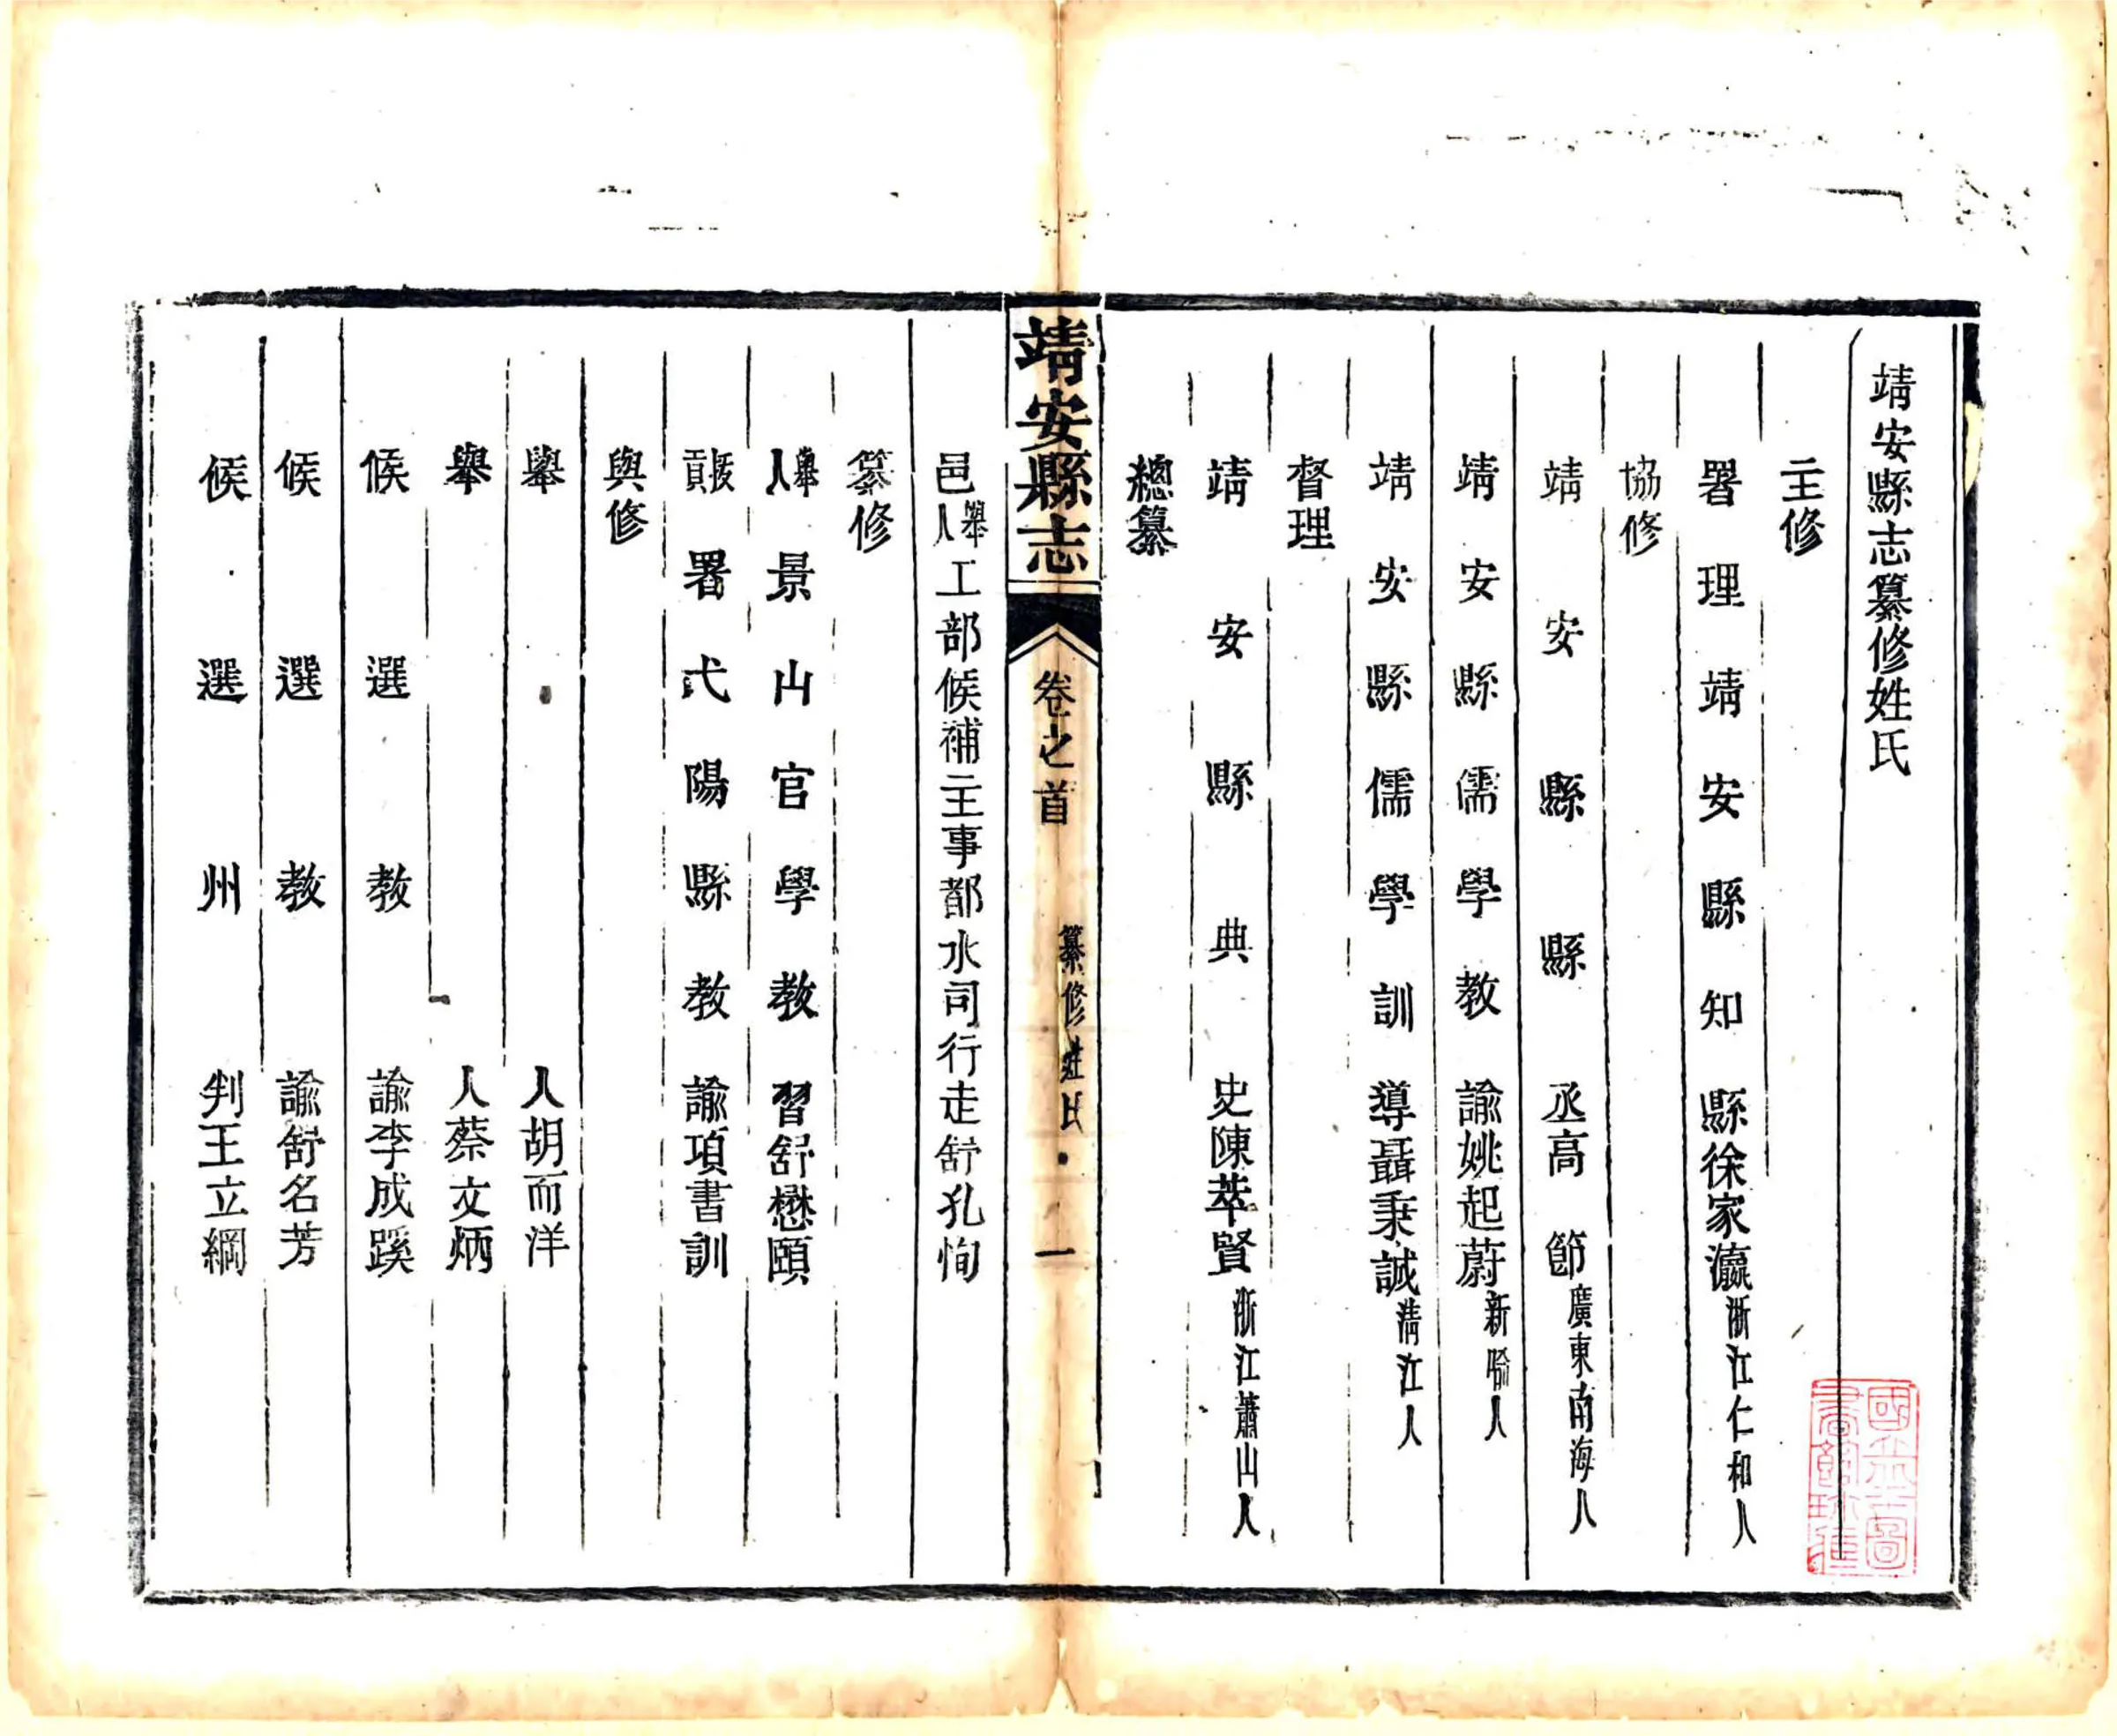 靖安縣志纂修姓氏
主修
署理靖安縣知縣徐家瀛浙江仁和人
協修
靖安縣縣丞高節廣東南海人
靖安縣儒學教諭姚起蔚新喻人
靖安縣儒學訓導聶秉誠清江人
督理
靖安縣典史陳萃賢浙江蕭山人
總纂
靖安縣志 卷之首 纂修姓氏 一
邑舉人工部候補主事都水司行走舒孔恂
纂修
舉人景山官學教習舒懋頤
拔貢署弋陽縣教諭項書訓
與修
舉人胡而洋
舉人蔡文炳
候選教諭李成蹊
候選教諭舒名芳
候選州判王立綱
國立北平圖書館珍藏